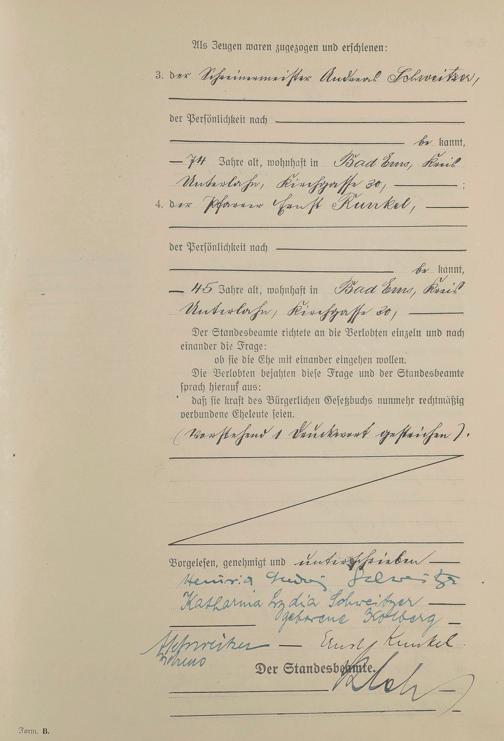 Als Zeugen waren zugezogen und erschienen:
3. der Schreinermeister Andreas Schweitzer,
der Persönlichkeit nach
be kannt,
74 Jahre alt, wohnhaft in Bad Ems, Kreis
Unterlahn, Kirchgasse 30, ;
4. der Pfarrer Ernst Kunkel,
der Persönlichkeit nach
be kannt,
45 Jahre alt, wohnhaft in Bad Ems, Kreis
Unterlahn, Kirchgasse 30,
Der Standesbeamte richtete an die Verlobten einzeln und nach
einander die Frage:
ob sie die Ehe mit einander eingehen wollen.
Die Verlobten bejahten diese Frage und der Standesbeamte
sprach hierauf aus:
daß sie kraft des Bürgerlichen Gesetzbuchs nunmehr rechtmäßig
verbundene Eheleute seien.
(Vorstehend 1 Druckwort gestrichen).
Vorgelesen, genehmigt und unterschrieben
Heinrich Ludwig Schweitzer
Katharina Lydia Schweitzer
geborene Kolberg
A Schweitzer Ernst Kunkel.
Der Standesbeamte.
Form. B.